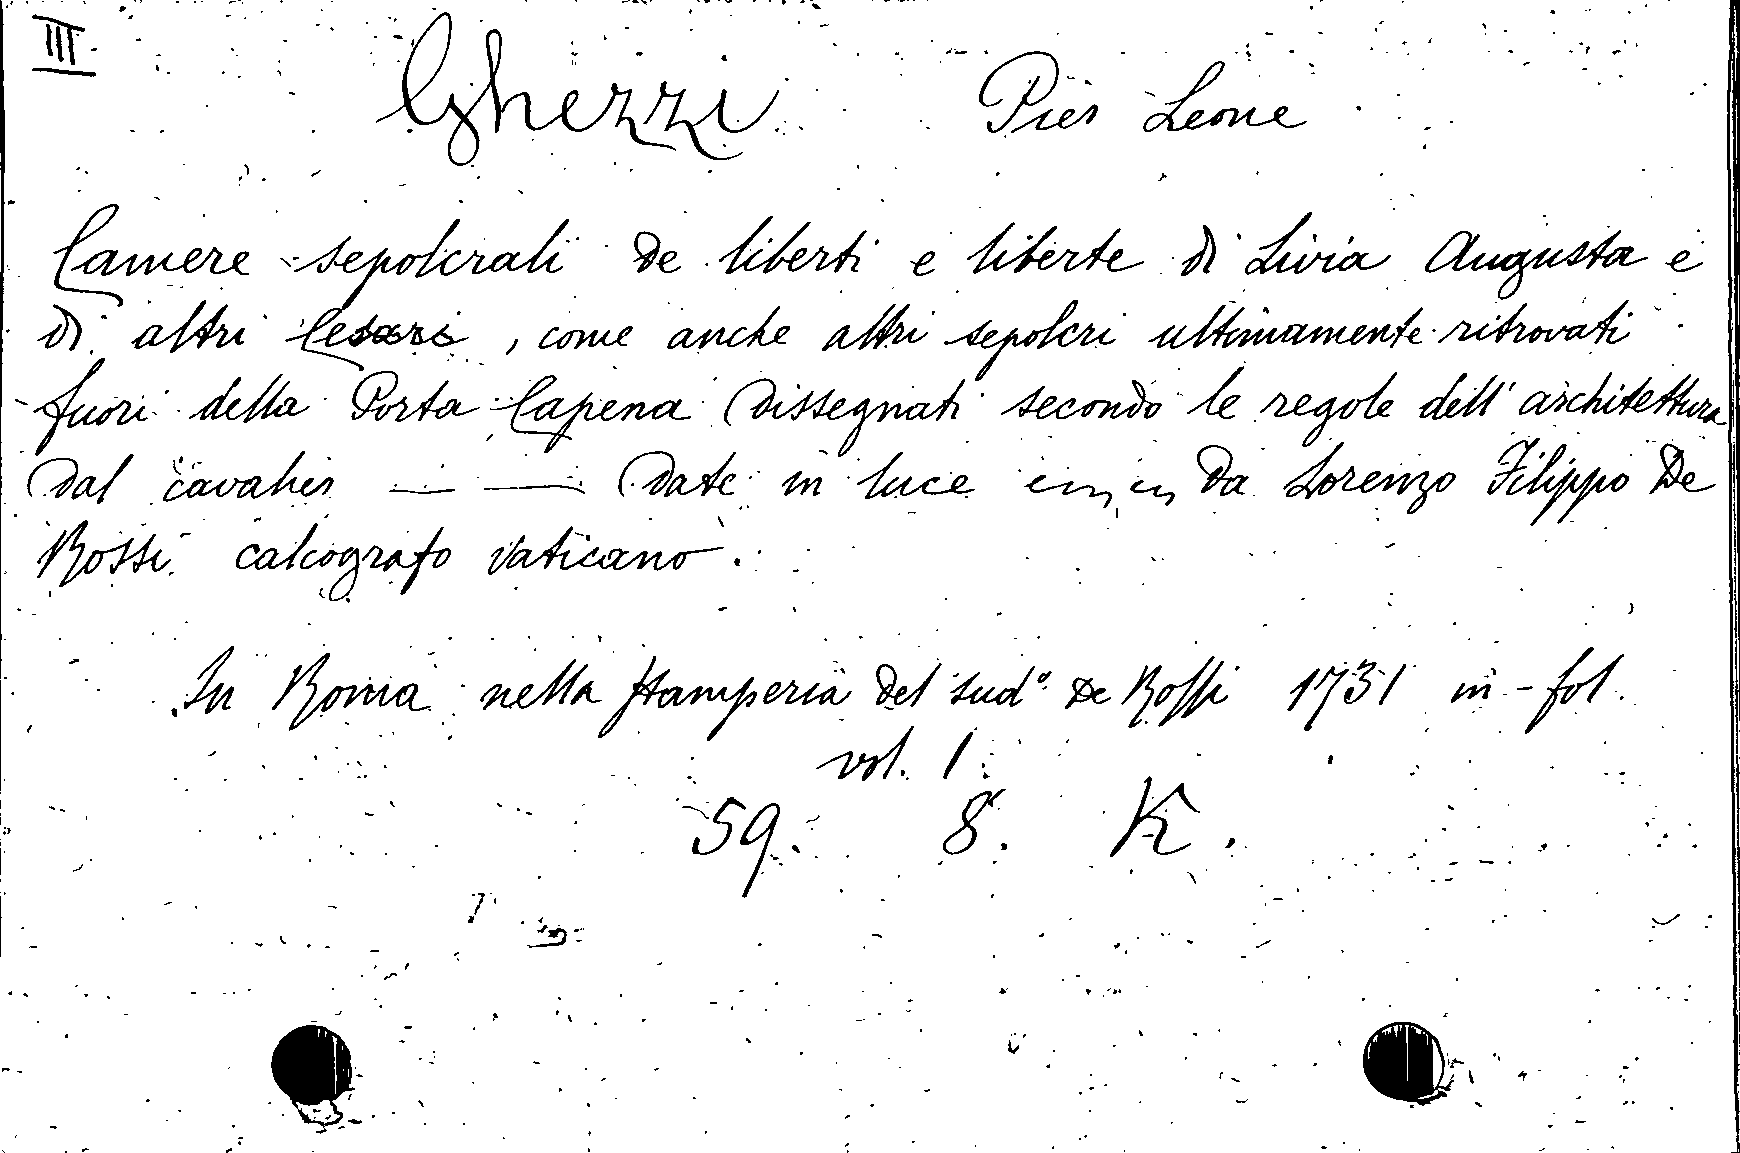 III
Ghezzi Pier Leone
Camere sepolcrali de liberti e liberte di Livia Augusta e
di altri Cesari, come anche altri sepolcri ultimamente ritrovati
fuori della Porta Capena dissegnati secondo le regole dell' architettura
dal cavalier — — date in luce da Lorenzo Filippo De
Rossi calcografo vaticano.
In Roma nella stamperia del sud° De Rossi 1731 in-fol.
vol. 1.
59. 8. K.